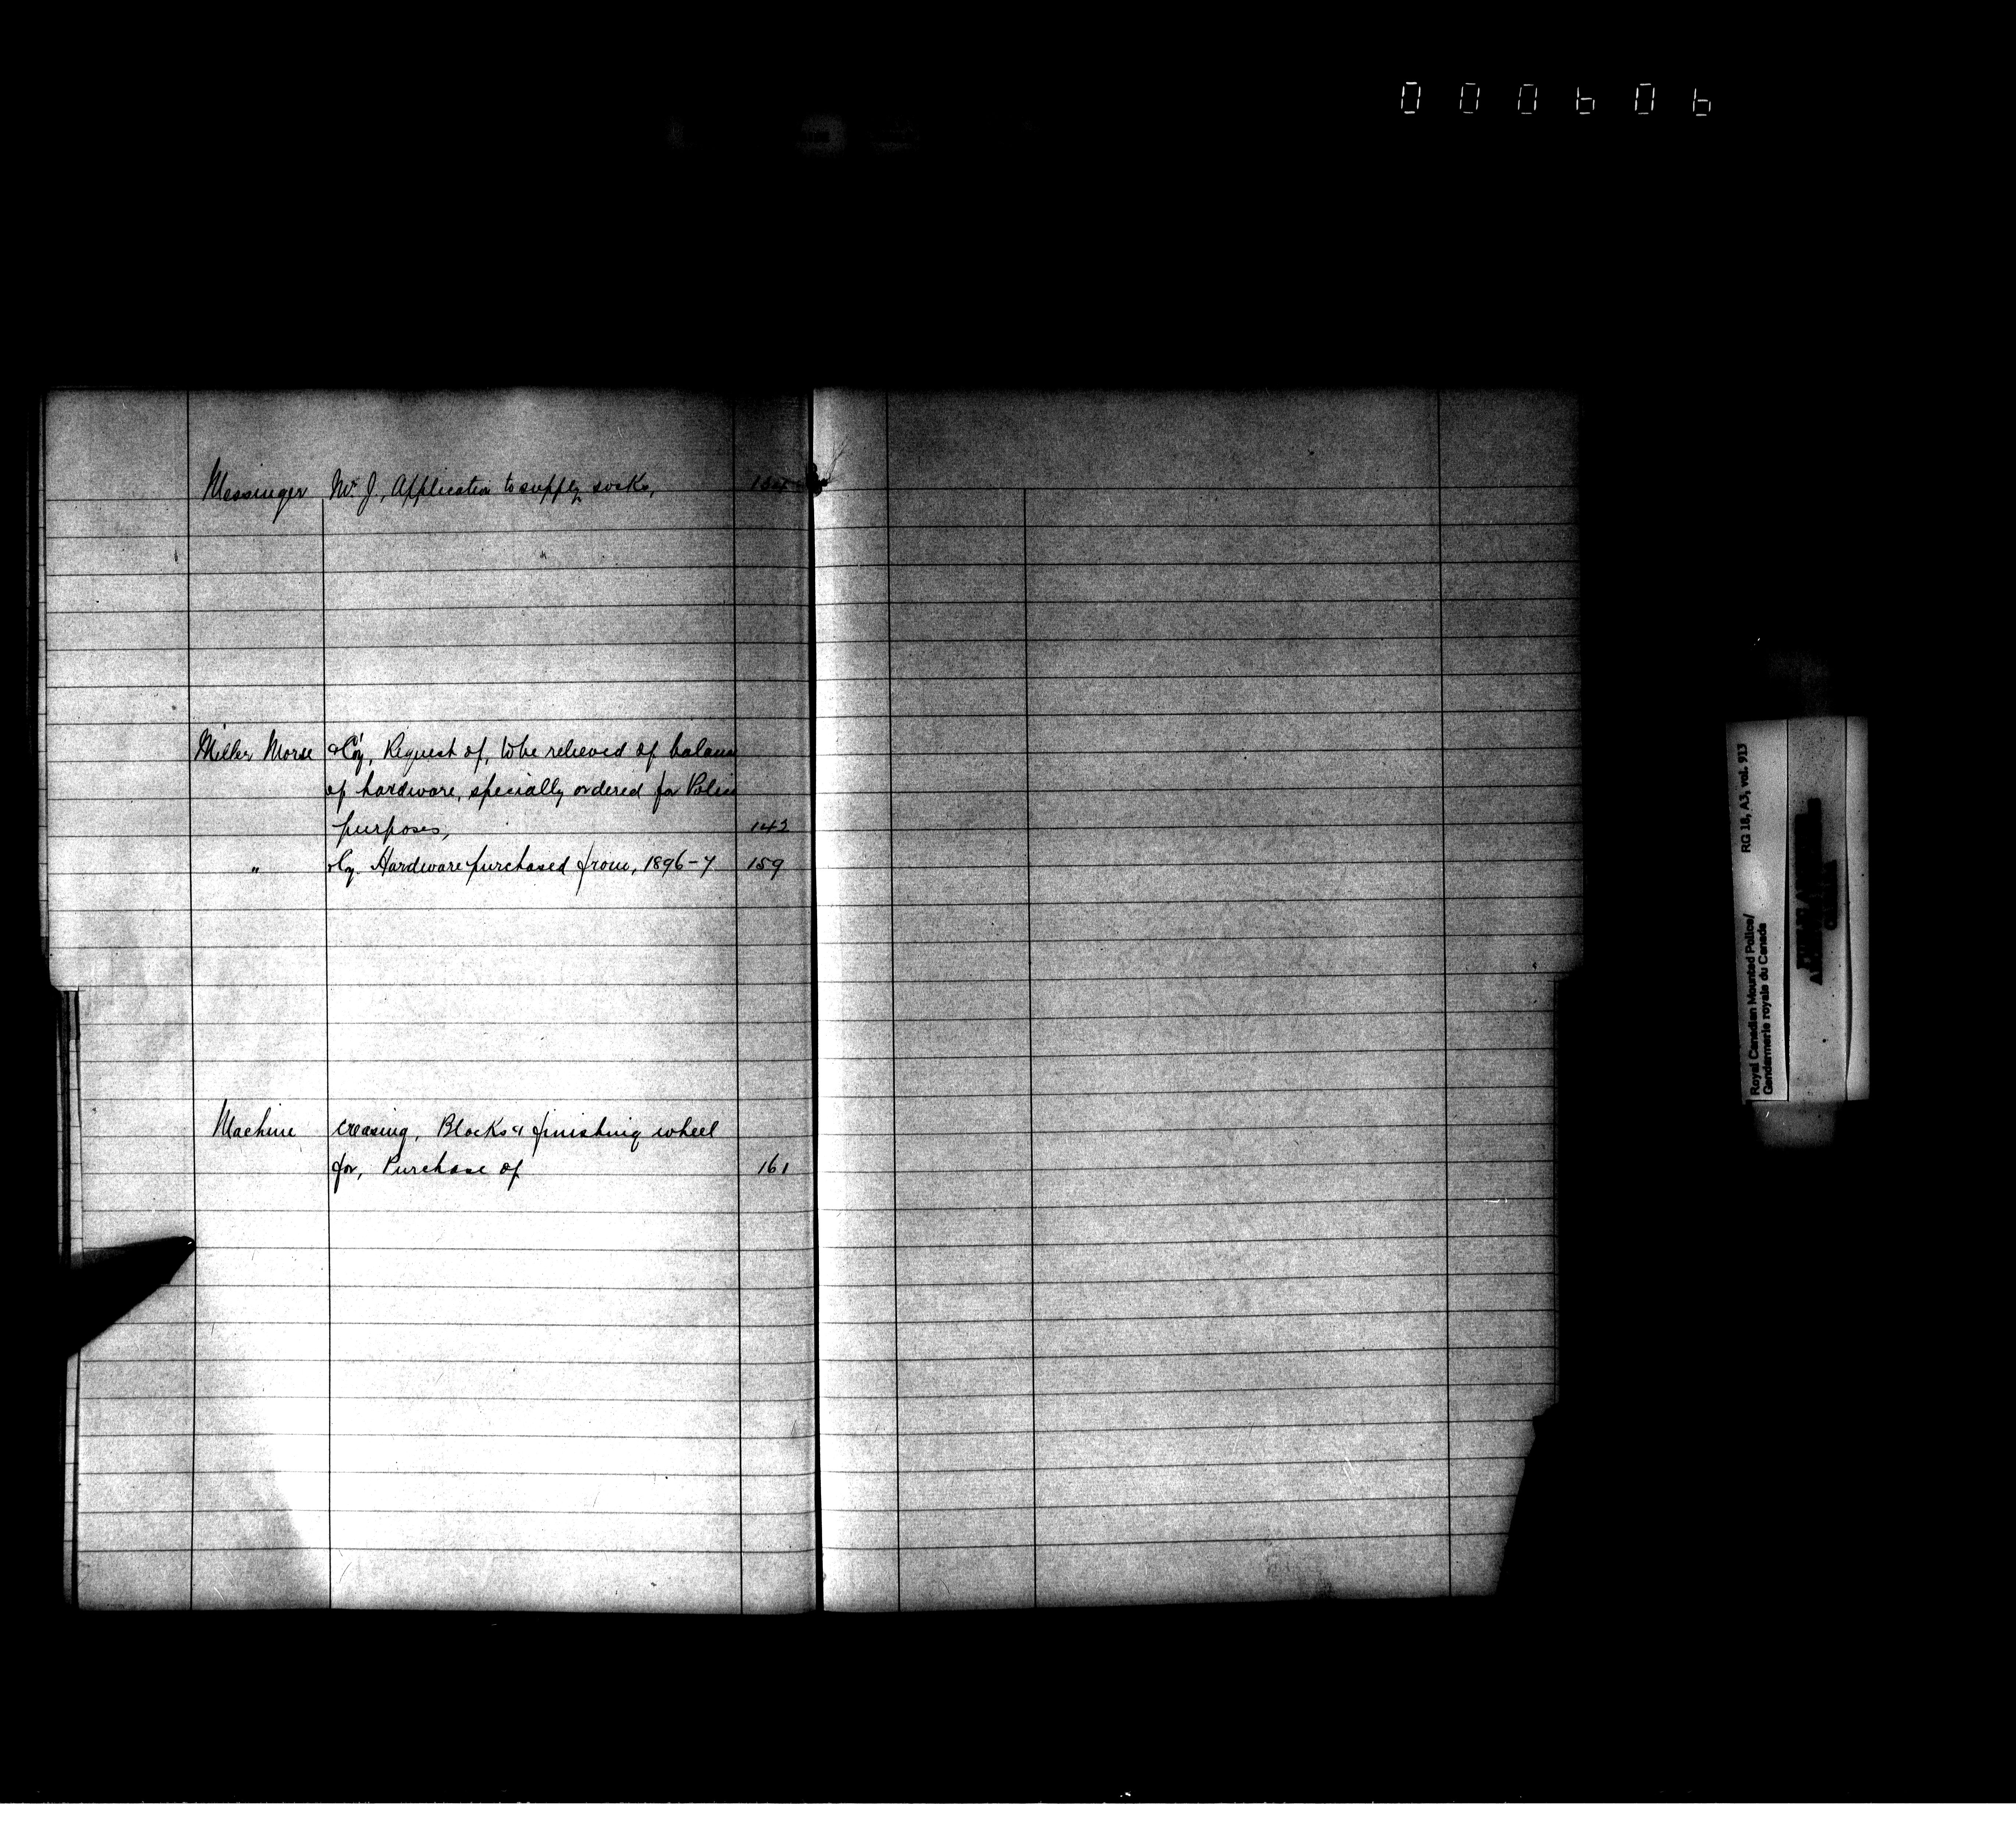 000606
Messinger Mr J, Application to supply socks,
Miller Morse & Coy, Request of, to be relieved of balance
of hardware, specially ordered for Police
purposes, 142
" & Cy. Hardware purchased from, 1896-7 159
Machine creasing, Blocks & finishing wheel
for, Purchase of 161
Royal Canadian Mounted Police/ RG 18, A3, vol. 913
Gendarmerie royale du Canada